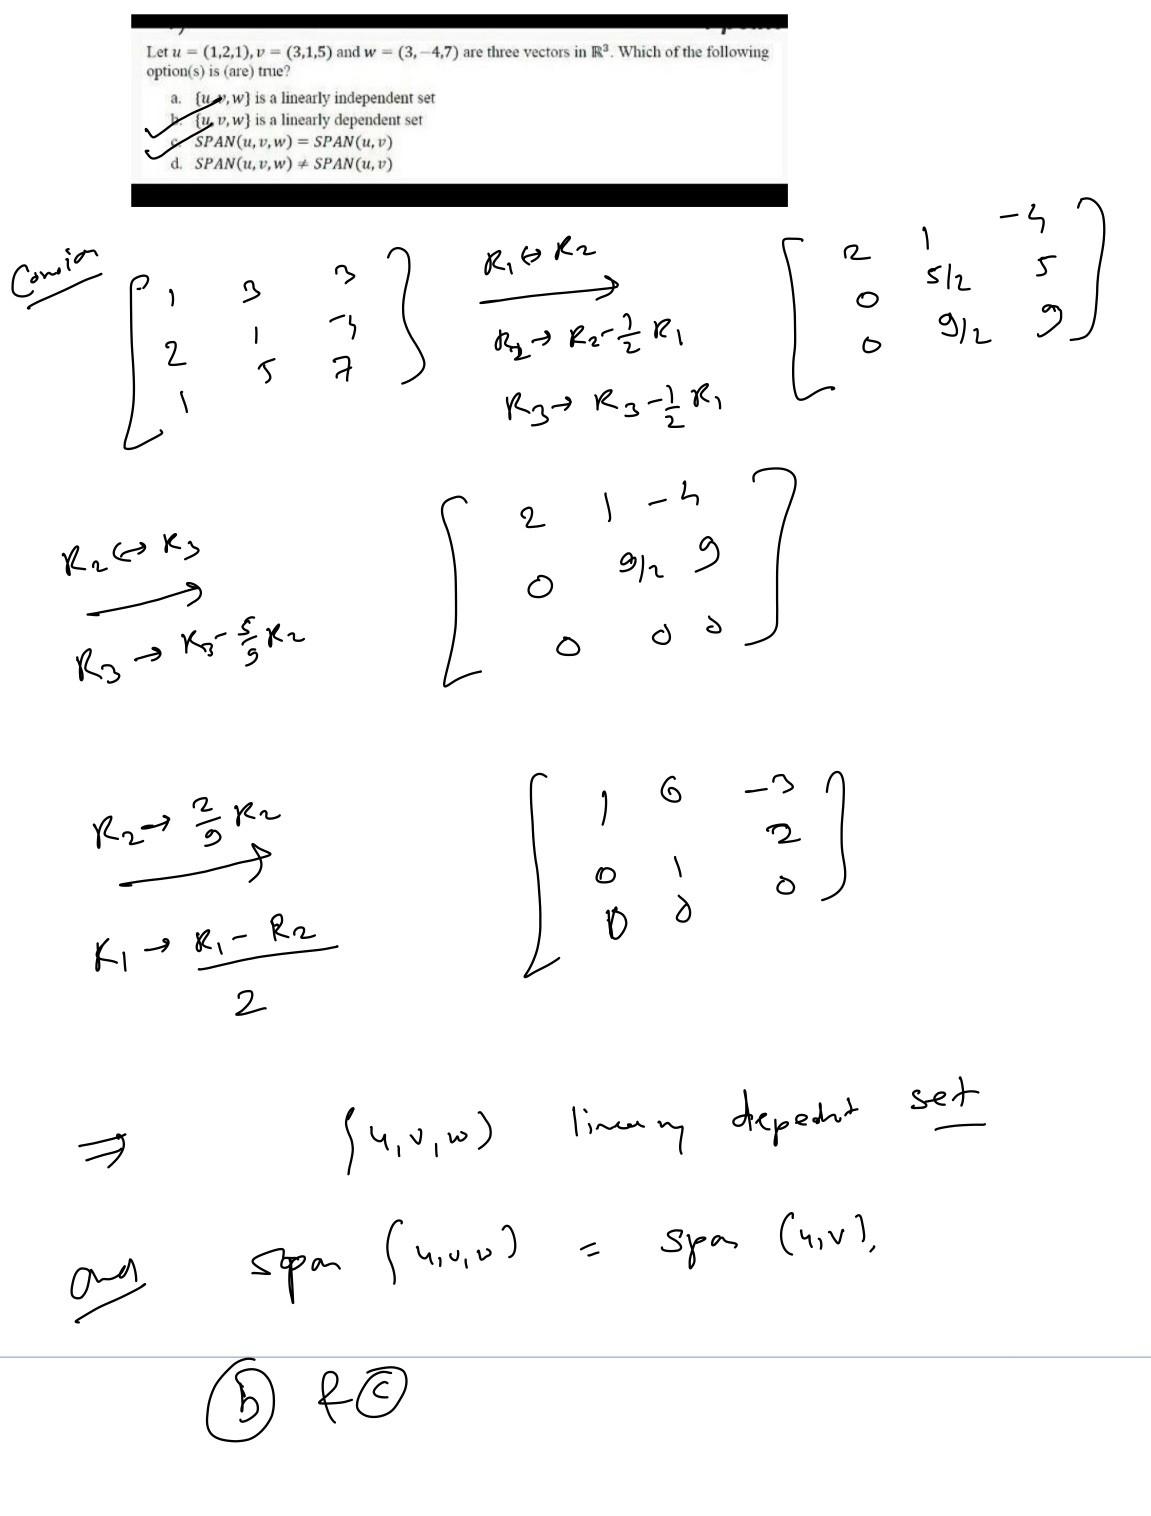 Let u = (1,2,1), v = (3,1,5) and w = (3,−4,7) are three vectors in ℝ³. Which of the following
option(s) is (are) true?
a. {u,v,w} is a linearly independent set
b. {u,v,w} is a linearly dependent set
c. SPAN(u,v,w) = SPAN(u,v)
d. SPAN(u,v,w) ≠ SPAN(u,v)
R₁ ↔ R₂
1 3 3
2 1 -4
1 5 7
R₂ → R₂ - 1/2 R₁
R₃ → R₃ - 1/2 R₁
2 1 -4
0 5/2 5
0 9/2 9
R₂ ↔ R₃
R₃ → R₃ - 5/9 R₂
2 1 -4
0 9/2 9
0 0 0
R₂ → 2/9 R₂
R₁ → R₁ - R₂ / 2
1 0 -3
0 1 2
0 0 0
⇒ {u,v,w) set
and span {u,v,w) = span (u,v).
b & c